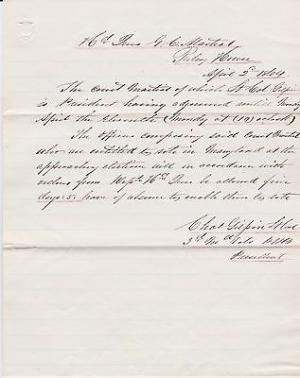 Hd Qrs G. C. Martial
Relay House
April 2d 1864
The Court Martial of which Lt Col Gilpin
is President having adjourned until Monday
April the Eleventh (Monday at (10) o'clock)
The officers composing said Court Martial
who are entitled to vote in Maryland at the
approaching election will in accordance with
orders from Hd Qrs be allowed five
days 5 leave of absence to enable them to vote
Chas Gilpin Lt Col
3d Md Vols P H B
President